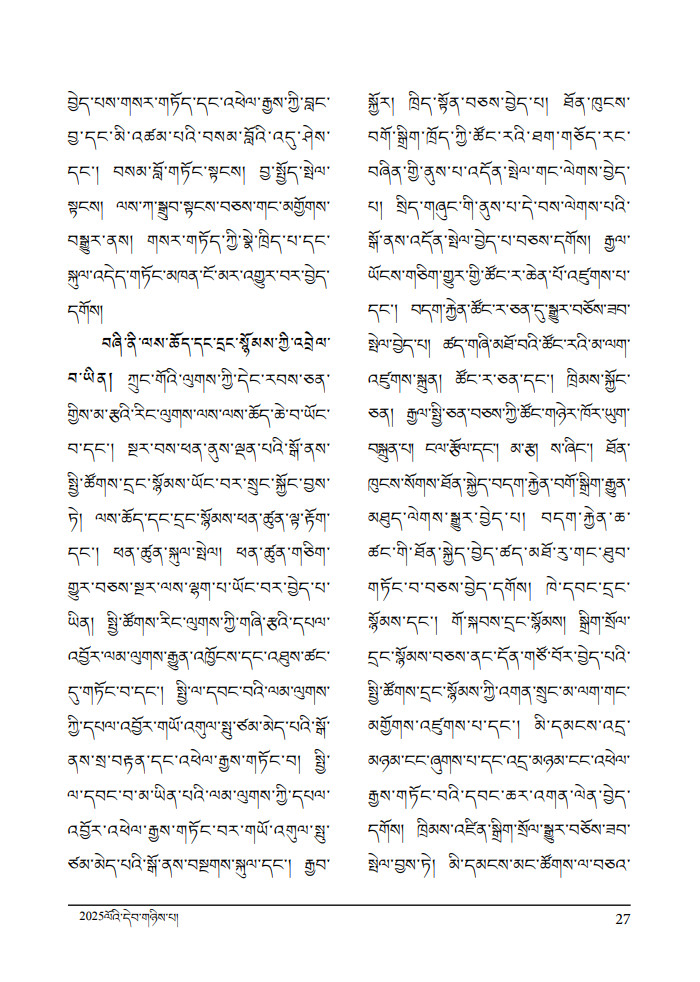 བྱེད་པས་གསར་གཏོད་དང་འཕེལ་རྒྱས་ཀྱི་བླང་
བྱ་དང་མི་འཚམ་པའི་བསམ་བློའི་འདུ་ཤེས་
དང་། བསམ་བློ་གཏོང་སྟངས། བྱ་སྤྱོད་སྤེལ་
སྟངས། ལས་ཀ་སྒྲུབ་སྟངས་བཅས་གང་མགྱོགས་
བསྒྱུར་ནས། གསར་གཏོད་ཀྱི་སྣེ་ཁྲིད་པ་དང་
སྐུལ་འདེད་གཏོང་མཁན་ངོ་མར་འགྱུར་བར་བྱེད་
དགོས།
བཞི་ནི་ལས་ཆོད་དང་དྲང་སྙོམས་ཀྱི་འབྲེལ་
བ་ཡིན། ཀྲུང་གོའི་ལུགས་ཀྱི་དེང་རབས་ཅན་
གྱིས་མ་རྩའི་རིང་ལུགས་ལས་ལས་ཆོད་ཆེ་བ་ཡོང་
བ་དང་། སྔར་བས་ཕན་ནུས་ལྡན་པའི་སྒོ་ནས་
སྤྱི་ཚོགས་དྲང་སྙོམས་ཡོང་བར་སྲུང་སྐྱོང་བྱས་
ཏེ། ལས་ཆོད་དང་དྲང་སྙོམས་ཕན་ཚུན་ལྟ་རྟོག་
དང་། ཕན་ཚུན་སྐུལ་སྤེལ། ཕན་ཚུན་གཅིག་
གྱུར་བཅས་སྔར་ལས་ལྷག་པ་ཡོང་བར་བྱེད་པ་
ཡིན། སྤྱི་ཚོགས་རིང་ལུགས་ཀྱི་གཞི་རྩའི་དཔལ་
འབྱོར་ལམ་ལུགས་རྒྱུན་འཁྱོངས་དང་འཐུས་ཚང་
དུ་གཏོང་བ་དང་། སྤྱི་ལ་དབང་བའི་ལམ་ལུགས་
ཀྱི་དཔལ་འབྱོར་གཡོ་འགུལ་སྤུ་ཙམ་མེད་པའི་སྒོ་
ནས་སྲ་བརྟན་དང་འཕེལ་རྒྱས་གཏོང་བ། སྤྱི་
ལ་དབང་བ་མ་ཡིན་པའི་ལམ་ལུགས་ཀྱི་དཔལ་
འབྱོར་འཕེལ་རྒྱས་གཏོང་བར་གཡོ་འགུལ་སྤུ་
ཙམ་མེད་པའི་སྒོ་ནས་བསྔགས་སྐུལ་དང་། རྒྱབ་
སྐྱོར། ཁྲིད་སྟོན་བཅས་བྱེད་པ། ཐོན་ཁུངས་
བགོ་སྒྲིག་ཁྲོད་ཀྱི་ཚོང་རའི་ཐག་གཅོད་རང་
བཞིན་གྱི་ནུས་པ་འདོན་སྤེལ་གང་ལེགས་བྱེད་
པ། སྲིད་གཞུང་གི་ནུས་པ་དེ་བས་ལེགས་པའི་
སྒོ་ནས་འདོན་སྤེལ་བྱེད་པ་བཅས་དགོས། རྒྱལ་
ཡོངས་གཅིག་གྱུར་གྱི་ཚོང་ར་ཆེན་པོ་འཛུགས་པ་
དང་། བདག་རྐྱེན་ཚོང་ར་ཅན་དུ་སྒྱུར་བཅོས་ཟབ་
སྤེལ་བྱེད་པ། ཚད་གཞི་མཐོ་བའི་ཚོང་རའི་མ་ལག་
འཛུགས་སྐྲུན། ཚོང་ར་ཅན་དང་། ཁྲིམས་སྐྱོང་
ཅན། རྒྱལ་སྤྱི་ཅན་བཅས་ཀྱི་ཚོང་གཉེར་ཁོར་ཡུག་
བསྐྲུན་པ། ངལ་རྩོལ་དང་། མ་རྩ། ས་ཞིང་། ཐོན་
ཁུངས་སོགས་ཐོན་སྐྱེད་བདག་རྐྱེན་བགོ་སྒྲིག་རྒྱུན་
མཐུད་ལེགས་སྒྱུར་བྱེད་པ། བདག་རྐྱེན་ཆ་
ཚང་གི་ཐོན་སྐྱེད་བྱེད་ཚད་མཐོ་རུ་གང་ཐུབ་
གཏོང་བ་བཅས་བྱེད་དགོས། ཁེ་དབང་དྲང་
སྙོམས་དང་། གོ་སྐབས་དྲང་སྙོམས། སྒྲིག་སྲོལ་
དྲང་སྙོམས་བཅས་ནང་དོན་གཙོ་བོར་བྱེད་པའི་
སྤྱི་ཚོགས་དྲང་སྙོམས་ཀྱི་འགན་སྲུང་མ་ལག་གང་
མགྱོགས་འཛུགས་པ་དང་། མི་དམངས་འདྲ་
མཉམ་ངང་ཞུགས་པ་དང་འདྲ་མཉམ་ངང་འཕེལ་
རྒྱས་གཏོང་བའི་དབང་ཆར་འགན་ལེན་བྱེད་
དགོས། ཁྲིམས་འཛིན་སྒྲིག་སྲོལ་སྒྱུར་བཅོས་ཟབ་
སྤེལ་བྱས་ཏེ། མི་དམངས་མང་ཚོགས་ལ་བཅའ་
2025ལོའི་དེབ་གཉིས་པ།
27